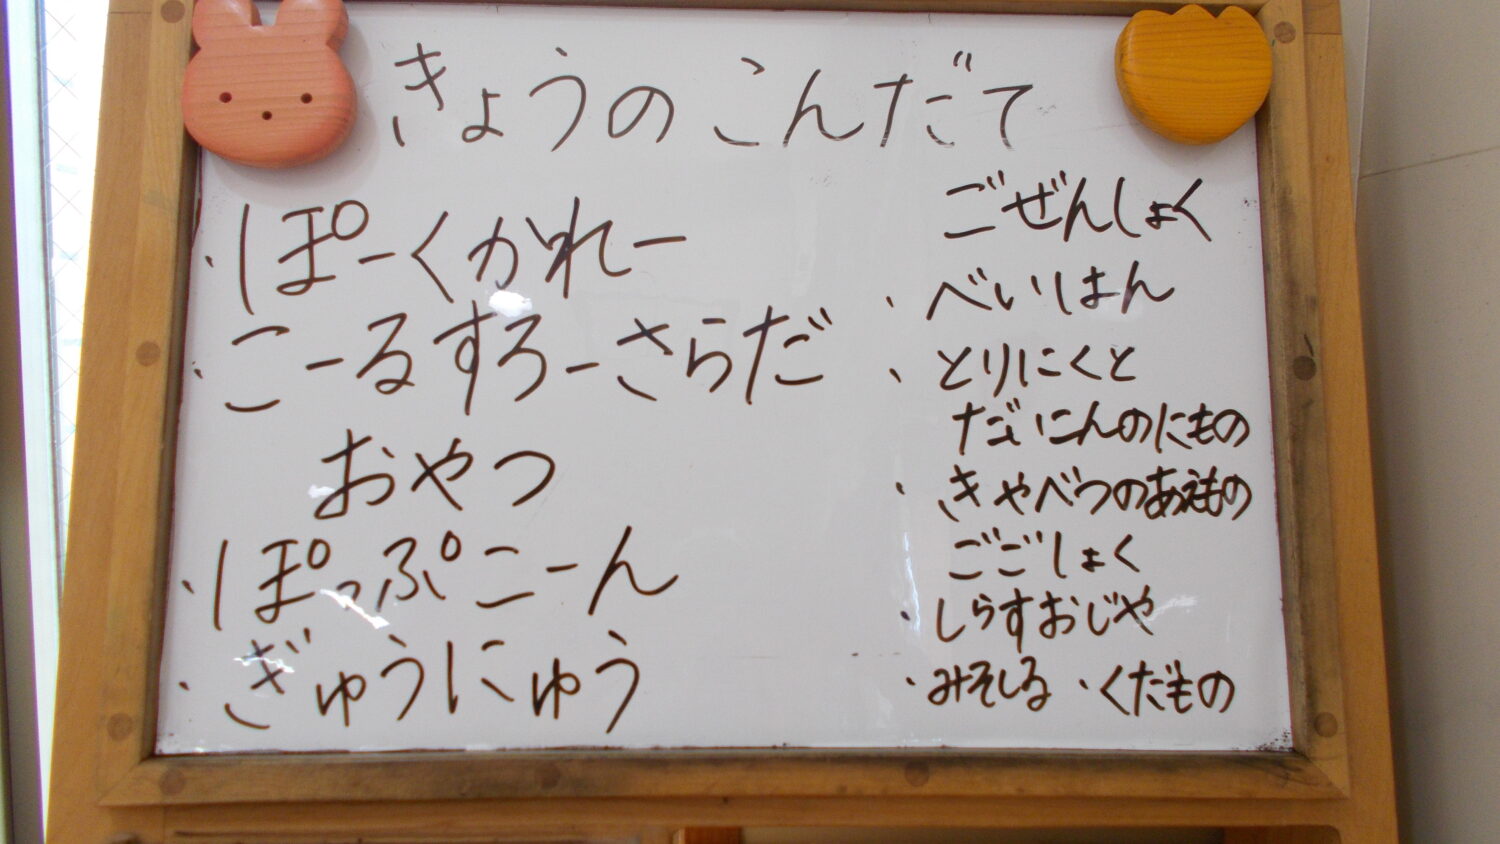 きょうのこんだて
・ぽーくかれー
・こーるすろーさらだ
おやつ
・ぽっぷこーん
・ぎゅうにゅう
ごぜんしょく
・べいはん
・とりにくと
だいこんのにもの
・きゃべつのあえもの
ごごしょく
・しらすおじや
・みそしる ・くだもの